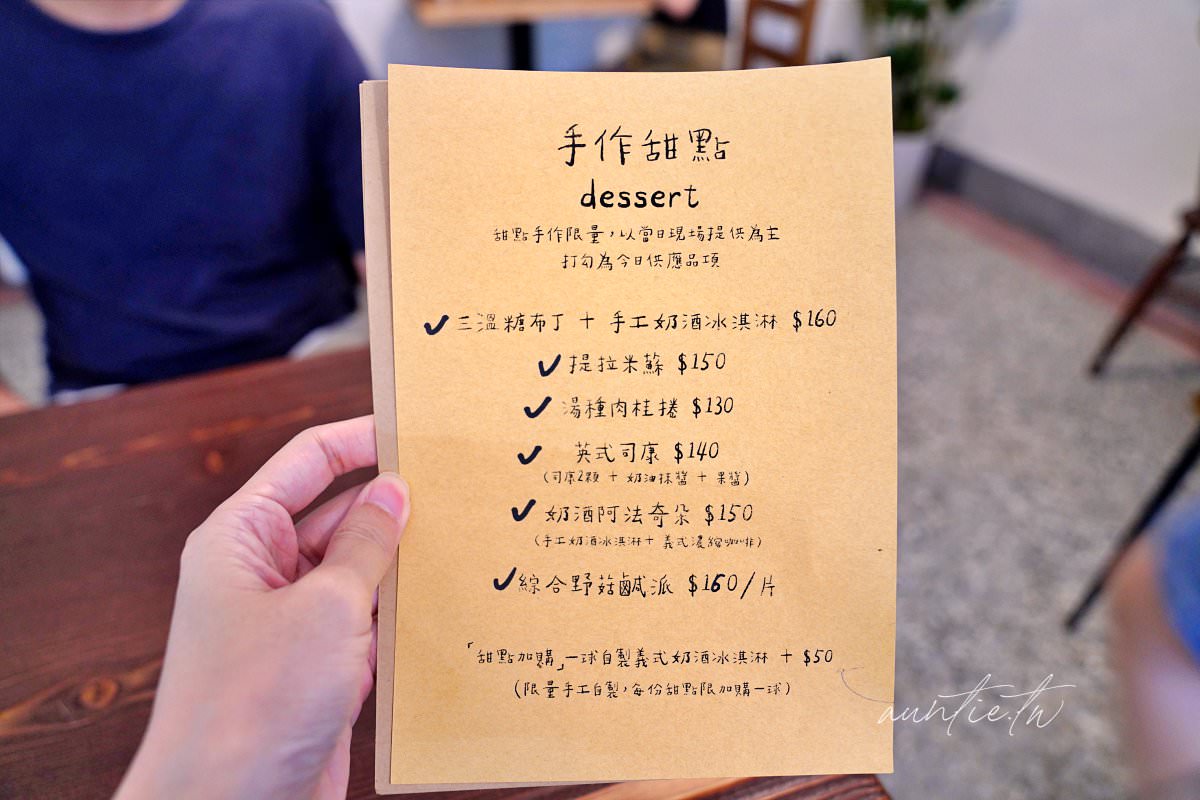 手作甜點
dessert
甜點手作限量，以當日現場提供為主
打勾為今日供應品項
✓三溫糖布丁 + 手工奶酒冰淇淋 $160
✓提拉米蘇 $150
✓湯種肉桂捲 $130
✓英式司康 $140
(司康2顆 + 奶油抹醬 + 果醬)
✓奶酒阿法奇朵 $150
(手工奶酒冰淇淋+ 義式濃縮咖啡)
✓綜合野菇鹹派 $160/片
「甜點加購」一球自製義式奶酒冰淇淋 + $50
(限量手工自製，每份甜點限加購一球)
auntie.tw